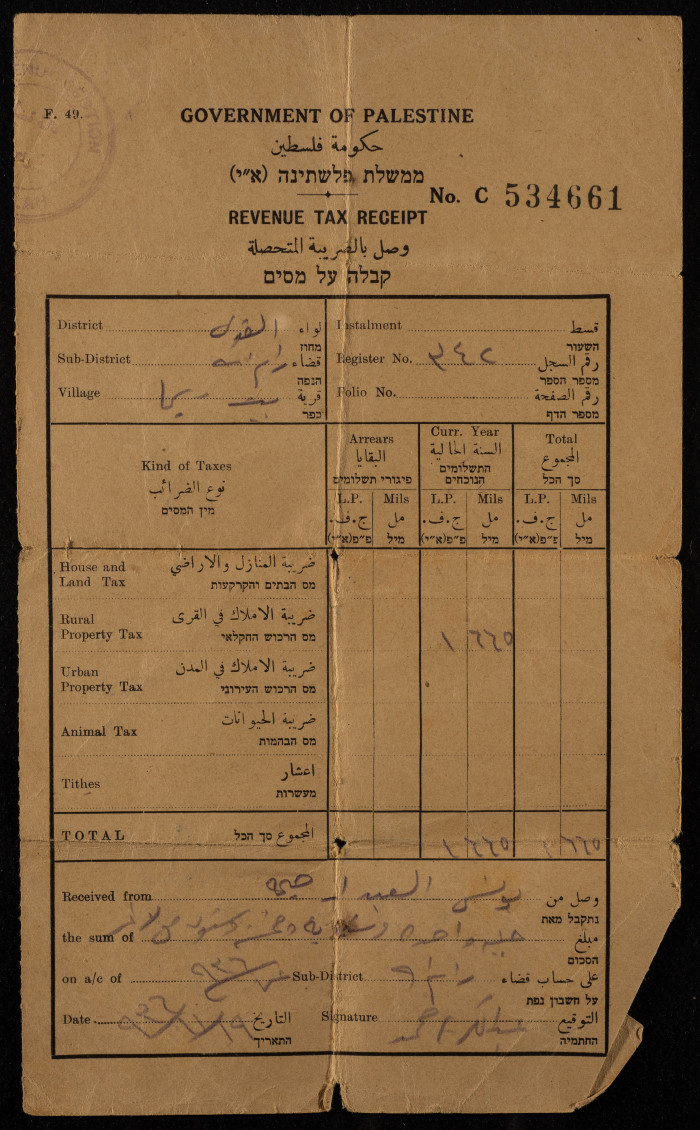 F. 49.
GOVERNMENT OF PALESTINE
حكومة فلسطين
ממשלת פלשתינה (א״י)
No. C 534661
REVENUE TAX RECEIPT
وصل بالضريبة المتحصلة
קבלה על מסים
District القدس لواء
מחוז
Sub-District رام الله قضاء
הנפה
Village بيت ريما قرية
כפר
Instalment قسط
השעור
Register No. ٣٤٢ رقم السجل
מספר הספר
Folio No. رقم الصفحة
מספר הדף
Kind of Taxes
نوع الضرائب
מין המסים
Arrears
البقايا
פיגורי תשלומים
Curr. Year
السنة الحالية
התשלומים
הנוכחים
Total
المجموع
סך הכל
L.P. Mils L.P. Mils L.P. Mils
ج.ف. مل ج.ف. مل ج.ف. مل
פ״פ(א״י) מיל פ״פ(א״י) מיל פ״פ(א״י) מיל
House and
Land Tax
ضريبة المنازل والاراضي
מס הבתים והקרקעות
Rural
Property Tax
ضريبة الاملاك في القرى
מס הרכוש החקלאי
١ ٦٦٥
Urban
Property Tax
ضريبة الاملاك في المدن
מס הרכוש העירוני
Animal Tax
ضريبة الحيوانات
מס הבהמות
Tithes
اعشار
מעשרות
TOTAL المجموع סך הכל ١ ٦٦٥ ١ ٦٦٥
Received from يونس العبد وصل من
נתקבל מאת
the sum of جنيه واحد وستماية وخمسة وستون مل مبلغ
הסכום
on a/c of ٩٣٦ Sub-District رام الله على حساب قضاء
על חשבון נפת
Date التاريخ Signature التوقيع
התאריך החתמיה